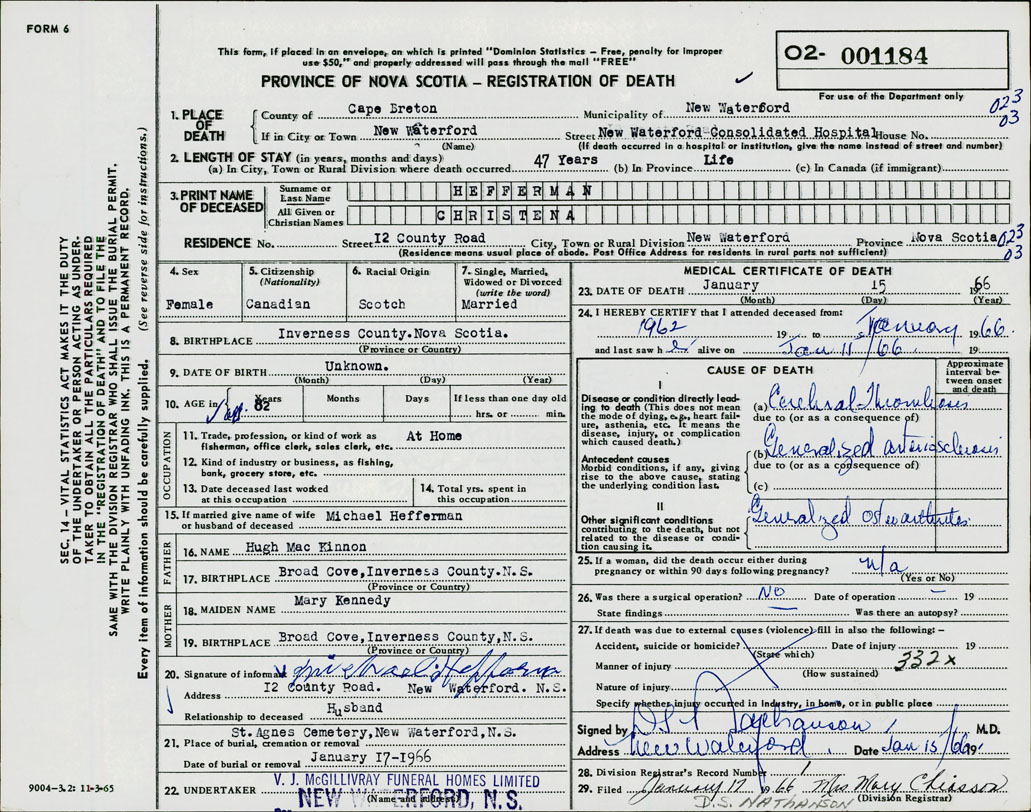 FORM 6
This form, if placed in an envelope, on which is printed "Dominion Statistics — Free, penalty for improper
use $50," and properly addressed will pass through the mail "FREE"
PROVINCE OF NOVA SCOTIA — REGISTRATION OF DEATH
O2- 001184
For use of the Department only
023
03
1. PLACE OF DEATH
County of Cape Breton Municipality of New Waterford
If in City or Town New Waterford Street New Waterford Consolidated Hospital House No.
(Name) (If death occurred in a hospital or institution, give the name instead of street and number)
2. LENGTH OF STAY (in years, months and days)
(a) In City, Town or Rural Division where death occurred 47 Years (b) In Province Life (c) In Canada (if immigrant)
3. PRINT NAME OF DECEASED
Surname or Last Name HEFFERMAN
All Given or Christian Names CHRISTENA
RESIDENCE No. Street I2 County Road City, Town or Rural Division New Waterford Province Nova Scotia 023
03
(Residence means usual place of abode. Post Office Address for residents in rural parts not sufficient)
4. Sex
Female
5. Citizenship
(Nationality)
Canadian
6. Racial Origin
Scotch
7. Single, Married,
Widowed or Divorced
(write the word)
Married
8. BIRTHPLACE Inverness County.Nova Scotia.
(Province or Country)
9. DATE OF BIRTH Unknown.
(Month) (Day) (Year)
10. AGE in Years 82 Months Days If less than one day old
hrs. or min.
OCCUPATION
11. Trade, profession, or kind of work as
fisherman, office clerk, sales clerk, etc. At Home
12. Kind of industry or business, as fishing,
bank, grocery store, etc.
13. Date deceased last worked
at this occupation
14. Total yrs. spent in
this occupation
15. If married give name of wife
or husband of deceased Michael Hefferman
FATHER
16. NAME Hugh Mac Kinnon
17. BIRTHPLACE Broad Cove,Inverness County.N.S.
(Province or Country)
MOTHER
18. MAIDEN NAME Mary Kennedy
19. BIRTHPLACE Broad Cove,Inverness County,N.S.
(Province or Country)
20. Signature of informant Michael Hefferman
Address I2 County Road. New Waterford. N.S.
Relationship to deceased Husband
St.Agnes Cemetery,New Waterford,N.S.
21. Place of burial, cremation or removal
Date of burial or removal January I7-I966
22. UNDERTAKER V. J. McGILLIVRAY FUNERAL HOMES LIMITED
(Name and address)
NEW WATERFORD, N.S.
MEDICAL CERTIFICATE OF DEATH
23. DATE OF DEATH January 15 1966
(Month) (Day) (Year)
24. I HEREBY CERTIFY that I attended deceased from:
1962 19 to January 1966
and last saw her alive on Jan 11/66 19
CAUSE OF DEATH
Approximate interval between onset and death
I
Disease or condition directly leading to death (This does not mean the mode of dying, e.g., heart failure, asthenia, etc. It means the disease, injury, or complication which caused death.)
(a) Cerebral Thrombosis
due to (or as a consequence of)
Antecedent causes
Morbid conditions, if any, giving rise to the above cause, stating the underlying condition last.
(b) Generalized arteriosclerosis
due to (or as a consequence of)
(c)
II
Other significant conditions
contributing to the death, but not related to the disease or condition causing it.
Generalized Osteoarthritis
25. If a woman, did the death occur either during
pregnancy or within 90 days following pregnancy? n/a
(Yes or No)
26. Was there a surgical operation? NO Date of operation — 19
State findings Was there an autopsy?
27. If death was due to external causes (violence) fill in also the following: —
Accident, suicide or homicide? Date of injury 19
(State which)
332x
Manner of injury
(How sustained)
Nature of injury
Specify whether injury occurred in industry, in home, or in public place
Signed by D S Nathanson M.D.
Address New Waterford Date Jan 15/66 19
28. Division Registrar's Record Number 1
29. Filed January 17 1966 Mrs Mary Chiasson
(Division Registrar)
D.S. NATHANSON
SEC. 14 — VITAL STATISTICS ACT MAKES IT THE DUTY
OF THE UNDERTAKER OR PERSON ACTING AS UNDER-
TAKER TO OBTAIN ALL THE PARTICULARS REQUIRED
IN THE "REGISTRATION OF DEATH" AND TO FILE THE
SAME WITH THE DIVISION REGISTRAR WHO SHALL ISSUE THE BURIAL PERMIT.
WRITE PLAINLY WITH UNFADING INK. THIS IS A PERMANENT RECORD.
Every item of information should be carefully supplied. (See reverse side for instructions.)
9004—3.2: 11-3-65